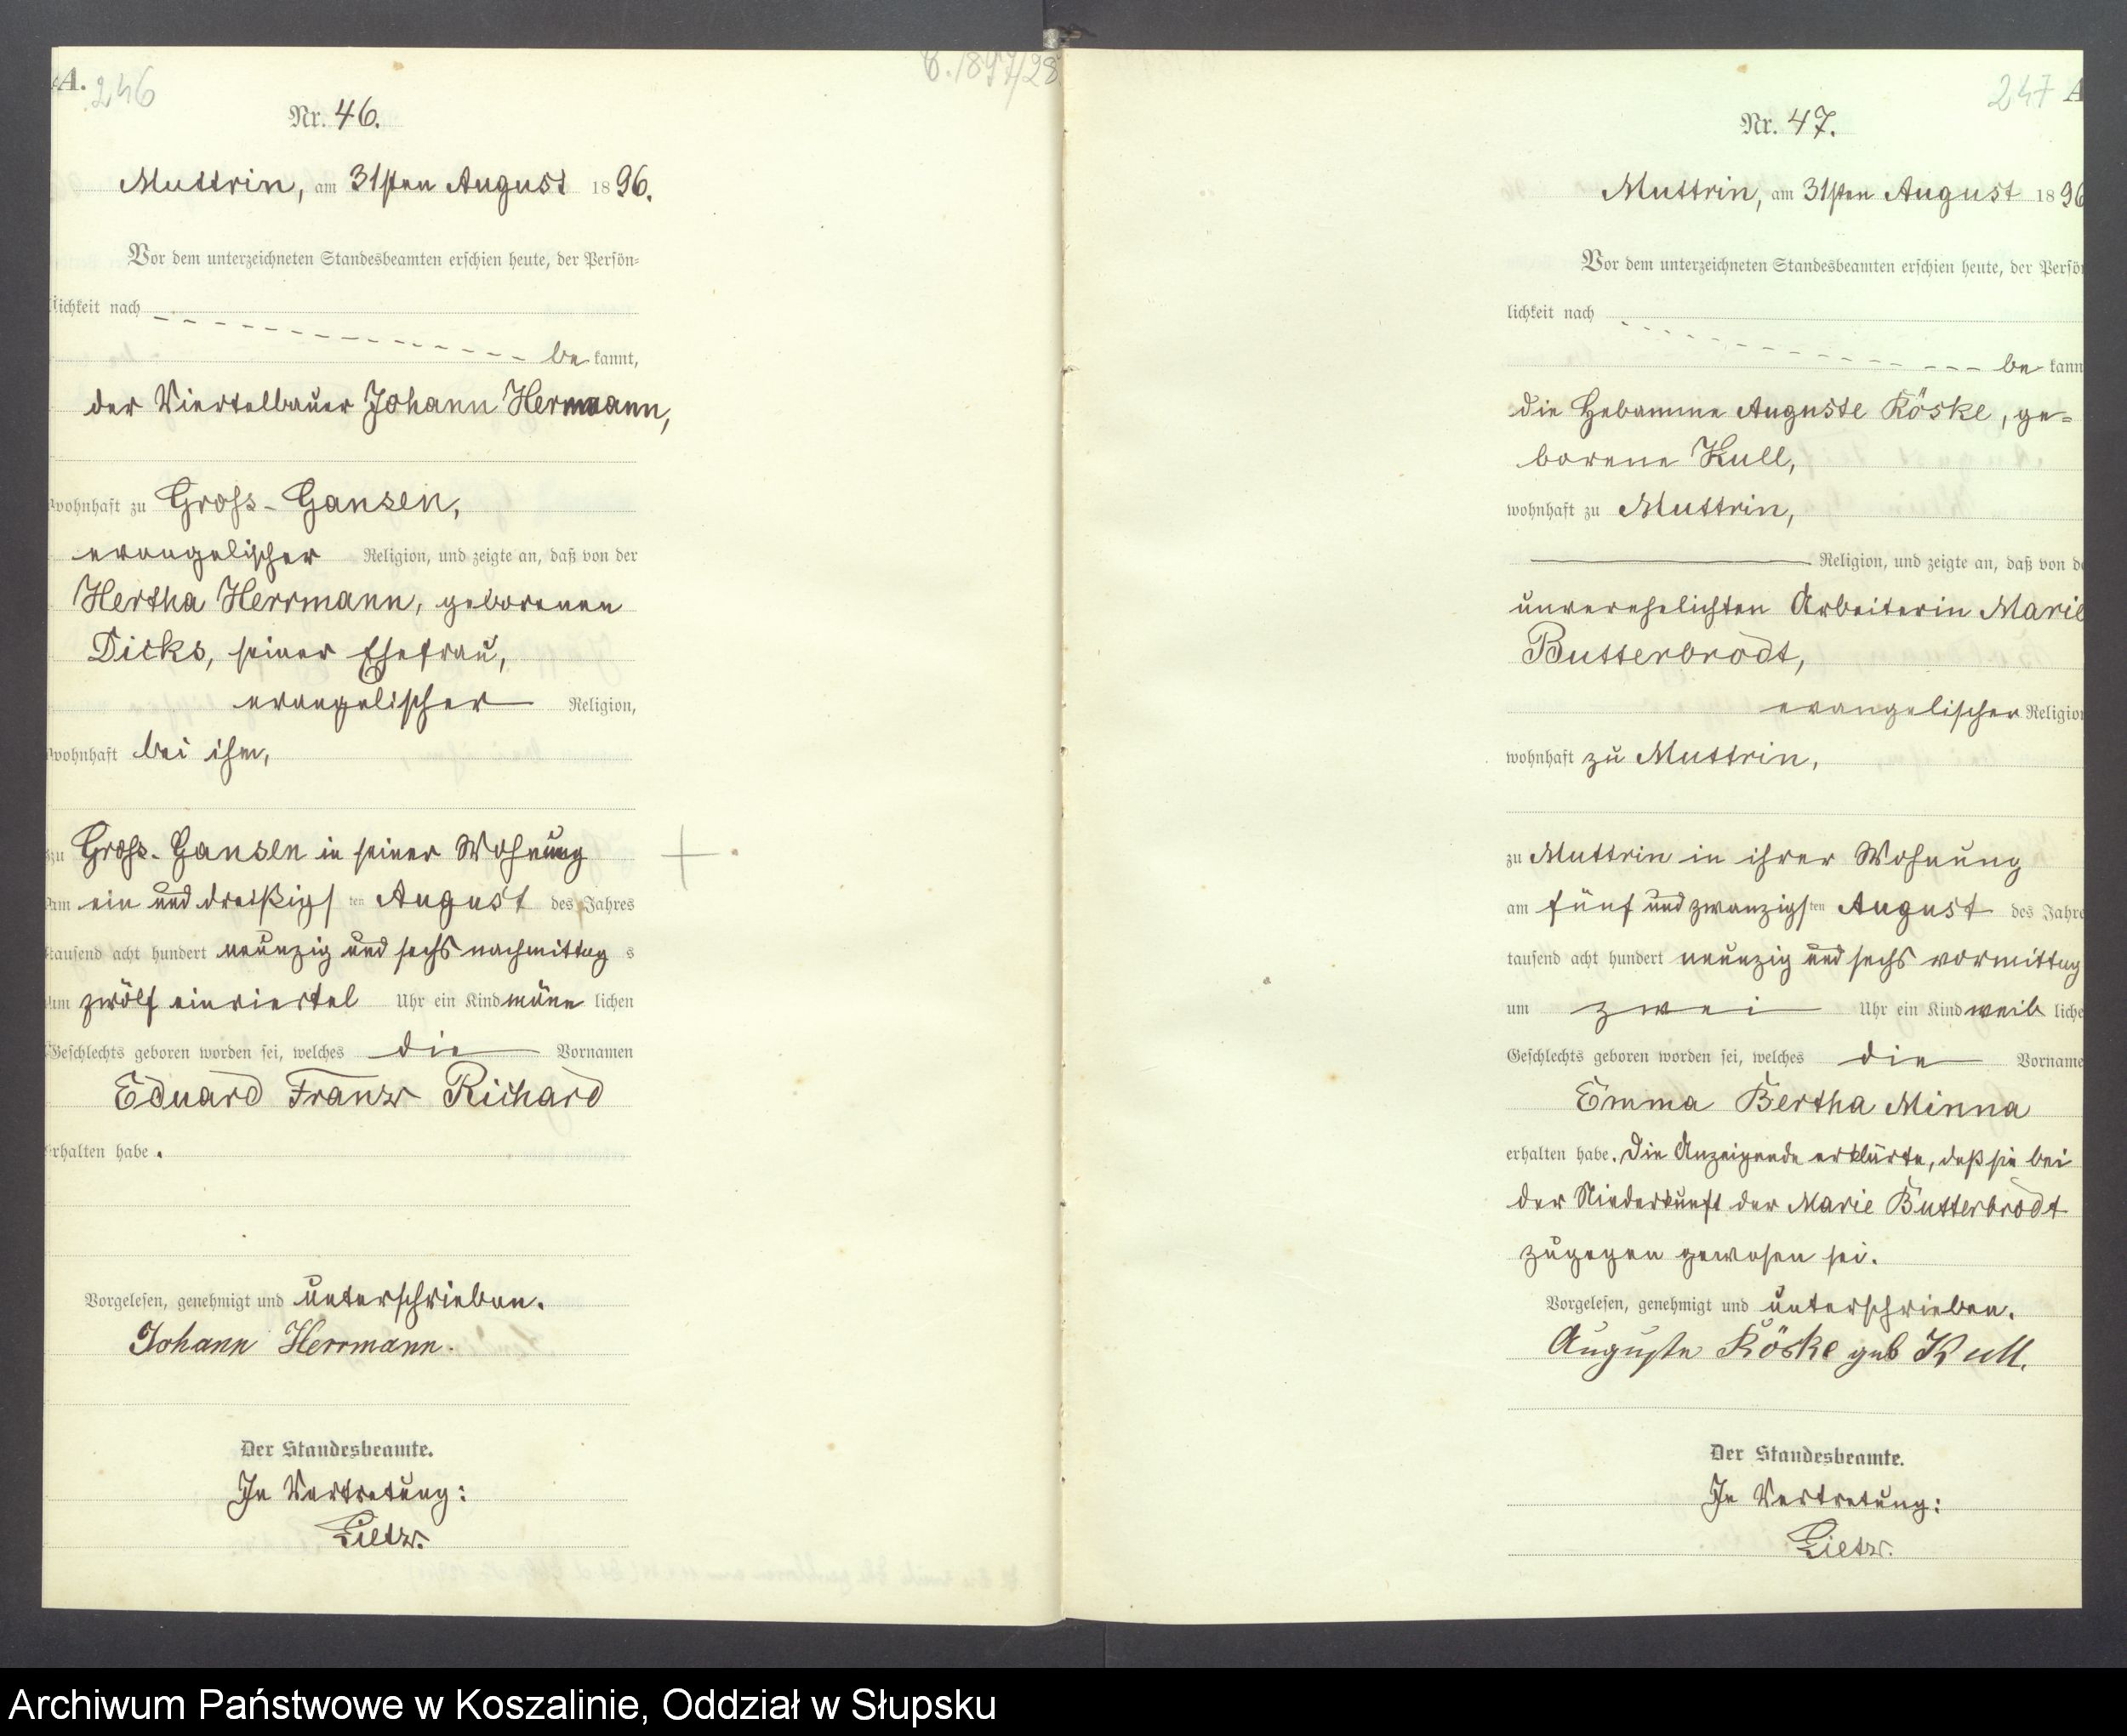 A. 246
B. 1897/28
Nr. 46.
Muttrin, am 31sten August 1896.
Vor dem unterzeichneten Standesbeamten erschien heute, der Persön-
lichkeit nach
be kannt,
der Viertelbauer Johann Herrmann,
wohnhaft zu Gross-Gansen,
evangelischer Religion, und zeigte an, daß von der
Hertha Herrmann, geborenen
Dicks, seiner Ehefrau,
evangelischer Religion,
wohnhaft bei ihm,
zu Gross-Gansen in seiner Wohnung
am ein und dreißigs ten August des Jahres
tausend acht hundert neunzig und sechs nachmittag s
um zwölf einviertel Uhr ein Kind männ lichen
Geschlechts geboren worden sei, welches die Vornamen
Eduard Franz Richard
erhalten habe.
Vorgelesen, genehmigt und unterschrieben.
Johann Herrmann.
Der Standesbeamte.
In Vertretung:
Lietz.
247 A
Nr. 47.
Muttrin, am 31sten August 1896
Vor dem unterzeichneten Standesbeamten erschien heute, der Persö
lichkeit nach
be kann
die Hebamme Auguste Röske, ge-
borene Kull,
wohnhaft zu Muttrin,
Religion, und zeigte an, daß von de
unverehelichten Arbeiterin Marie
Butterbrodt,
evangelischer Religion
wohnhaft zu Muttrin,
zu Muttrin in ihrer Wohnung
am fünf und zwanzigs ten August des Jahre
tausend acht hundert neunzig und sechs vormittag
um zwei Uhr ein Kind weib liche
Geschlechts geboren worden sei, welches die Vorname
Emma Bertha Minna
erhalten habe. Die Anzeigende erklärte, daß sie bei
der Niederkunft der Marie Butterbrodt
zugegen gewesen sei.
Vorgelesen, genehmigt und unterschrieben.
Auguste Röske geb Kull.
Der Standesbeamte.
In Vertretung:
Lietz.
Archiwum Państwowe w Koszalinie, Oddział w Słupsku